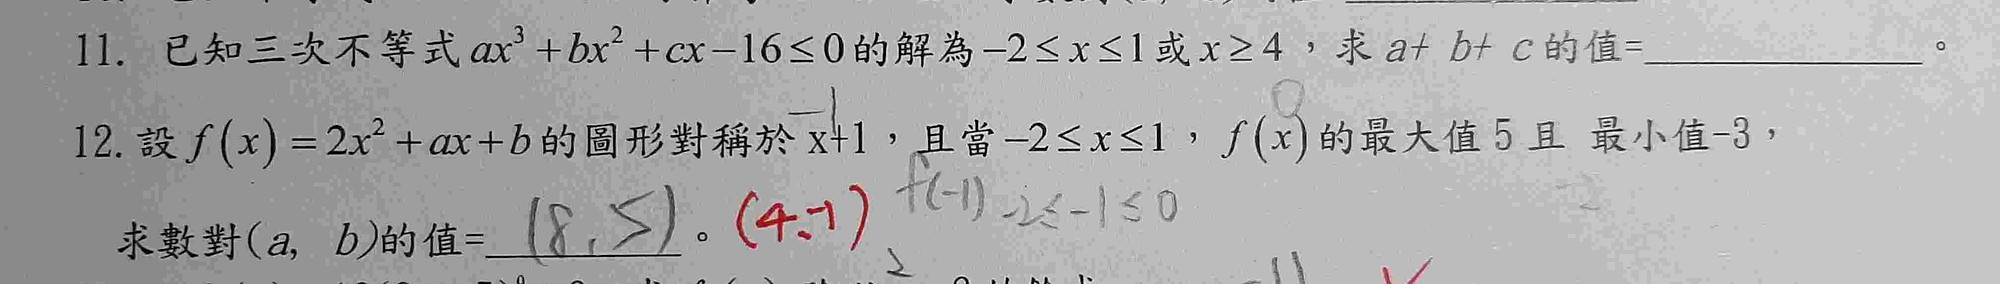 11. 已知三次不等式 ax³+bx²+cx−16≤0 的解為 −2≤x≤1 或 x≥4，求 a+ b+ c 的值=____________。
−1 0
12. 設 f(x)=2x²+ax+b 的圖形對稱於 x+1，且當 −2≤x≤1，f(x) 的最大值 5 且 最小值-3，
f(-1) -2≤-1≤0
求數對(a, b)的值= (8,5)。(4,-1)